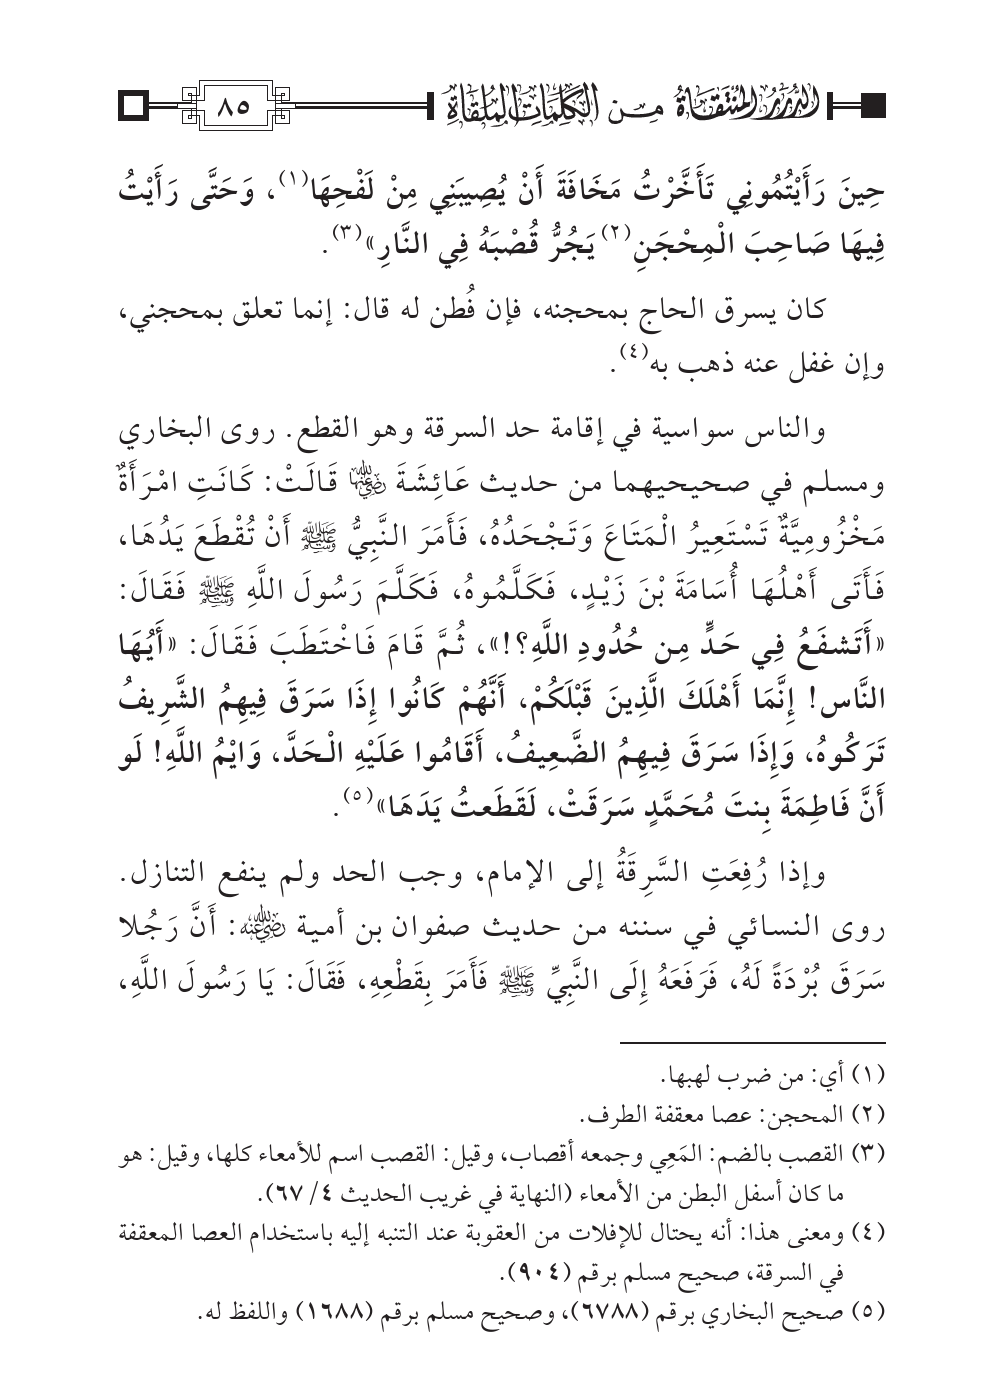 الدرر المنتقاة من الكلمات الملقاة ٨٥
حِينَ رَأَيْتُمُونِي تَأَخَّرْتُ مَخَافَةَ أَنْ يُصِيبَنِي مِنْ لَفْحِهَا(١)، وَحَتَّى رَأَيْتُ
فِيهَا صَاحِبَ الْمِحْجَنِ(٢) يَجُرُّ قُصْبَهُ فِي النَّارِ»(٣).
كان يسرق الحاج بمحجنه، فإن فُطن له قال: إنما تعلق بمحجني،
وإن غفل عنه ذهب به(٤).
والناس سواسية في إقامة حد السرقة وهو القطع. روى البخاري
ومسلم في صحيحيهما من حديث عَائِشَةَ رضي الله عنها قَالَتْ: كَانَتِ امْرَأَةٌ
مَخْزُومِيَّةٌ تَسْتَعِيرُ الْمَتَاعَ وَتَجْحَدُهُ، فَأَمَرَ النَّبِيُّ ﷺ أَنْ تُقْطَعَ يَدُهَا،
فَأَتَى أَهْلُهَا أُسَامَةَ بْنَ زَيْدٍ، فَكَلَّمُوهُ، فَكَلَّمَ رَسُولَ اللَّهِ ﷺ فَقَالَ:
«أَتَشفَعُ فِي حَدٍّ مِن حُدُودِ اللَّهِ؟!»، ثُمَّ قَامَ فَاخْتَطَبَ فَقَالَ: «أَيُهَا
النَّاس! إِنَّمَا أَهْلَكَ الَّذِينَ قَبْلَكُمْ، أَنَّهُمْ كَانُوا إِذَا سَرَقَ فِيهِمُ الشَّرِيفُ
تَرَكُوهُ، وَإِذَا سَرَقَ فِيهِمُ الضَّعِيفُ، أَقَامُوا عَلَيْهِ الْحَدَّ، وَايْمُ اللَّهِ! لَو
أَنَّ فَاطِمَةَ بِنتَ مُحَمَّدٍ سَرَقَتْ، لَقَطَعتُ يَدَهَا»(٥).
وإذا رُفِعَتِ السَّرِقَةُ إلى الإمام، وجب الحد ولم ينفع التنازل.
روى النسائي في سننه من حديث صفوان بن أمية رضي الله عنه: أَنَّ رَجُلا
سَرَقَ بُرْدَةً لَهُ، فَرَفَعَهُ إِلَى النَّبِيِّ ﷺ فَأَمَرَ بِقَطْعِهِ، فَقَالَ: يَا رَسُولَ اللَّهِ،
(١) أي: من ضرب لهبها.
(٢) المحجن: عصا معقفة الطرف.
(٣) القصب بالضم: المَعِي وجمعه أقصاب، وقيل: القصب اسم للأمعاء كلها، وقيل: هو
ما كان أسفل البطن من الأمعاء (النهاية في غريب الحديث ٤/ ٦٧).
(٤) ومعنى هذا: أنه يحتال للإفلات من العقوبة عند التنبه إليه باستخدام العصا المعقفة
في السرقة، صحيح مسلم برقم (٩٠٤).
(٥) صحيح البخاري برقم (٦٧٨٨)، وصحيح مسلم برقم (١٦٨٨) واللفظ له.